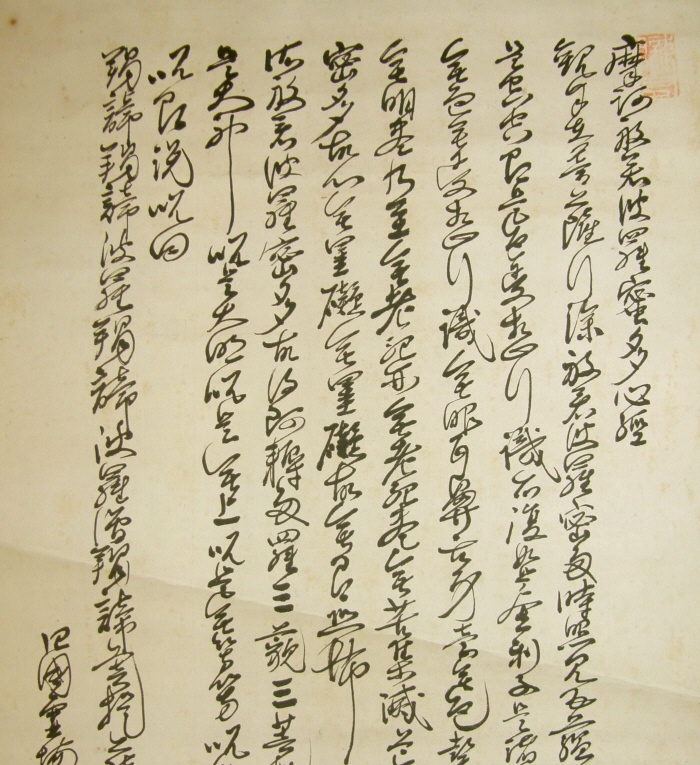 摩訶般若波羅蜜多心經
觀自在菩薩行深般若波羅蜜多時照見五蘊
是空空即是色受想行識亦復如是舍利子是諸
無色無受想行識無眼耳鼻舌身意無色聲
無明盡乃至無老死亦無老死盡無苦集滅道
密多故心無罣礙無罣礙故無有恐怖
依般若波羅密多故得阿耨多羅三藐三菩提
是大神呪是大明呪是無上呪是無等等呪
呪即説呪曰
羯諦羯諦波羅羯諦波羅僧羯諦菩提薩
四國霊場